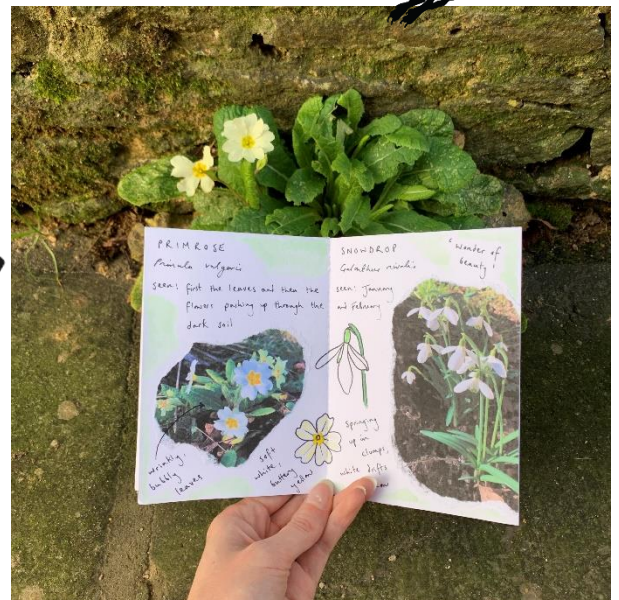 PRIMROSE
Primula vulgaris
seen: first the leaves and then the
flowers poking up through the
dark soil
wrinkly,
bubbly
leaves
soft
white,
buttery
yellow
SNOWDROP
Galanthus nivalis
seen: January
and February
"wonder of
beauty"
springing
up in
clumps,
white drifts